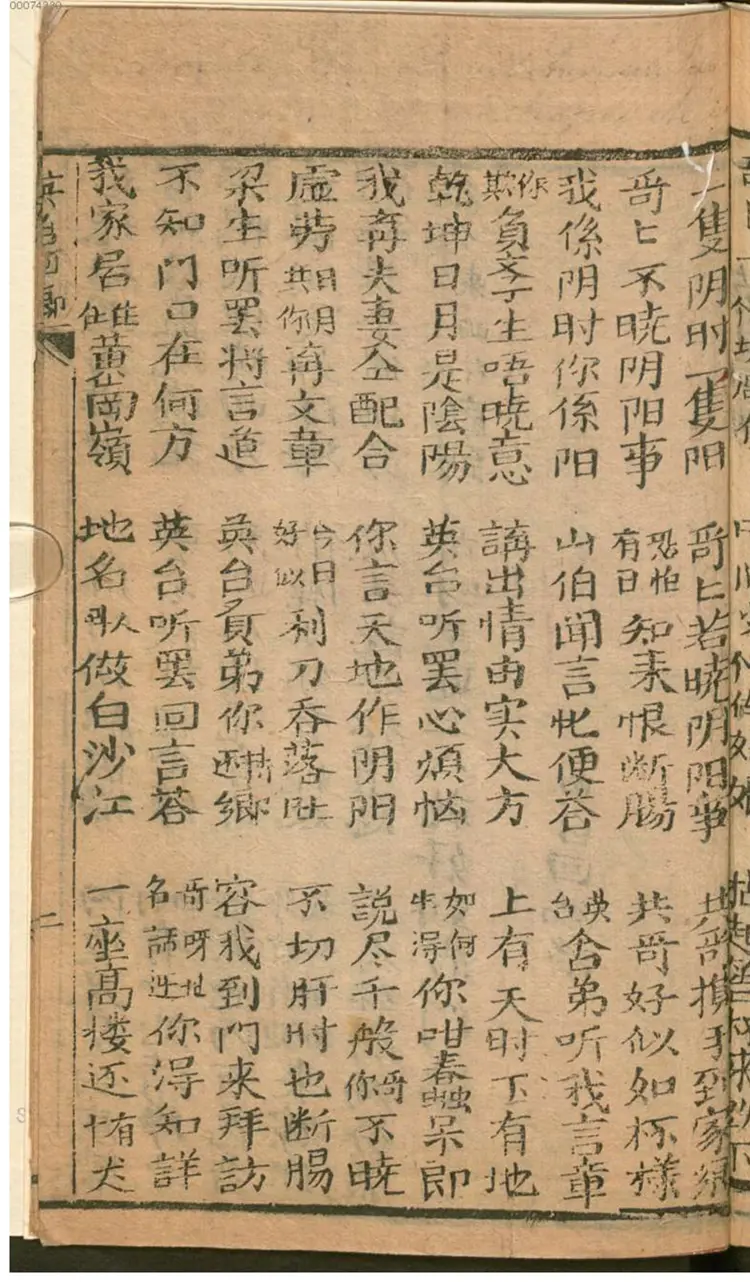 00074330
二隻阴时一隻阳 哥匕若暁阴阳事 共哥携手到家
哥匕不暁阴阳事 恐怕有日知来恨断腸 共哥好似如杯様
我係阴时你係阳 山伯聞言忙便荅 英台含弟听我言章
你欺負李生唔暁意 講出情由实大方 上有天时下有地
乾坤日月是陰陽 英台听罢心煩恼 如何生得你咁蠢蟲呆郎
我再夫妻仝配合 你言天地作阴阳 説尽千般哥你不暁
虚劳日月共你再文章 今日好似利刀吞落肚 不切肝时也断腸
梁生听罢将言道 英台負弟你 鄉 容我到門来拜訪
不知門口在何方 英台听罢回言荅 哥呀址名話过你得知詳
我家居 黄岡嶺 地名叫做白沙江 一座高楼还有犬
二